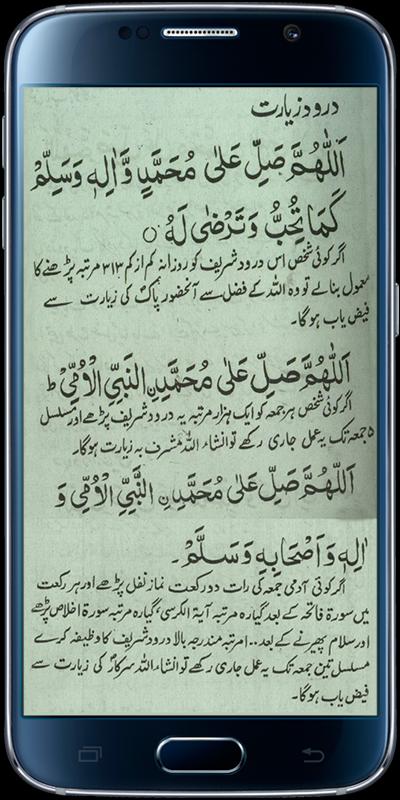 درود زیارت
اَللّٰهُمَّ صَلِّ عَلٰی مُحَمَّدٍ وَّاٰلِهٖ وَسَلِّمْ
کَمَا تُحِبُّ وَتَرْضٰی لَهٗ ○
اگر کوئی شخص اس درود شریف کو روزانہ کم از کم ۳۱۳ مرتبہ پڑھنے کا
معمول بنالے تو وہ اللہ کے فضل سے آنحضور پاکؐ کی زیارت سے
فیض یاب ہوگا۔
اَللّٰهُمَّ صَلِّ عَلٰی مُحَمَّدِنِ النَّبِيِّ الْاُمِّيِّ ط
اگر کوئی شخص ہر جمعہ کو ایک ہزار مرتبہ یہ درود شریف پڑھے اور مسلسل
۵ جمعہ تک یہ عمل جاری رکھے تو انشاء اللہ مشرف بہ زیارت ہوگا۔
اَللّٰهُمَّ صَلِّ عَلٰی مُحَمَّدِ نِ النَّبِيِّ الْاُمِّيِّ وَ
اٰلِهٖ وَاَصْحَابِهٖ وَسَلَّمْ۔
اگر کوئی آدمی جمعہ کی رات دو رکعت نماز نفل پڑھے اور ہر رکعت
میں سورۃ فاتحہ کے بعد گیارہ مرتبہ آیۃ الکرسی، گیارہ مرتبہ سورۃ اخلاص پڑھے
اور سلام پھیرنے کے بعد ۱۰۰ مرتبہ مندرجہ بالا درود شریف کا وظیفہ کرے
مسلسل تین جمعہ تک یہ عمل جاری رکھے تو انشاء اللہ سرکارؐ کی زیارت سے
فیض یاب ہوگا۔